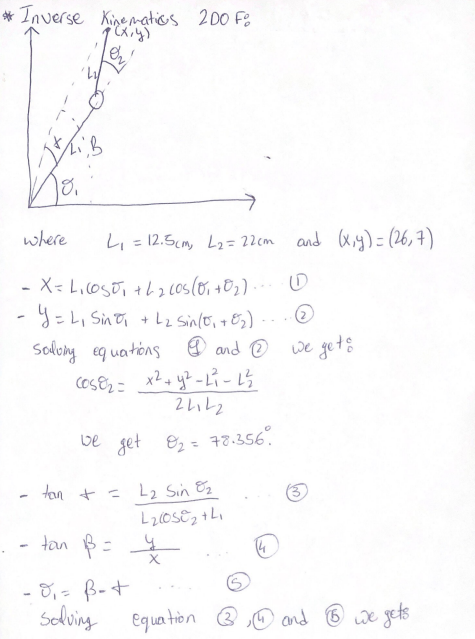 * Inverse Kinematics 2DOF:
(x,y)
θ2
L2
γ L1 B
θ1
where L1 = 12.5cm, L2 = 22cm and (x,y) = (26,7)
- X = L1cosθ1 + L2cos(θ1+θ2) .... ①
- y = L1 Sinθ1 + L2 Sin(θ1+θ2) .... ②
Solving equations ① and ② we get:
cosθ2 = x² + y² - L1² - L2² / 2L1L2
we get θ2 = 78.356°.
- tan γ = L2 Sin θ2 / L2cosθ2 + L1 ... ③
- tan β = y / x ... ④
- θ1 = β - γ .... ⑤
Solving equation ③, ④ and ⑤ we get: